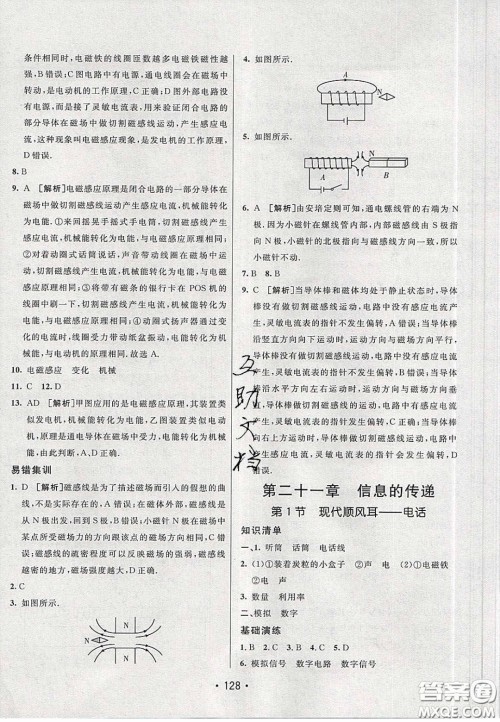 条件相同时，电磁铁的线圈匝数越多电磁铁磁性越
强，B错误；C图电路中有电源，通电线圈会在磁场中
转动，是电动机的工作原理，C正确；D图电路中没
有电源，而是接了灵敏电流表，用来验证闭合电路的
部分导体在磁场中做切割磁感线运动，产生感应电
流，这种现象叫电磁感应现象，是发电机的工作原理，
D错误.
8. B
9. A [解析]电磁感应原理是闭合电路的一部分导体在
磁场中做切割磁感线运动产生感应电流，机械能转化
为电能. ①来回摇晃手摇式手电筒，切割磁感线产生
感应电流，机械能转化为电能，与电磁感应原理相同；
②对着动圈式话筒说话，声音带动线圈在磁场中运
动，切割磁感线产生感应电流，机械能转化为电能，与
电磁感应原理相同；③将带有磁条的银行卡在POS机
的线圈中刷一下，切割磁感线产生感应电流，机械能转
化为电能，与电磁感应原理相同；④动圈式扬声器通过
变化的电流，线圈受力带动纸盆振动，电能转化为机械
能，与电动机原理相同. 故选A.
10. 电磁感应 变化 机械
11. C 12. D
13. AD [解析]甲图应用的是电磁感应原理，其装置类
似发电机，机械能转化为电能，乙图装置类似于电动
机，通电导体在磁场中受力运动，电能转化为机械能，
由此判断，A、D正确，B、C错误.
易错集训
1. D [解析]磁感线是为了描述磁场而引入的假想的曲
线，不是真实存在的，A错误；在磁体外部，磁感线是
从N极出发回到S极，B错误；小磁针N极在磁场中
某点所受磁场力的方向跟该点的磁场方向相同，C错
误；磁感线的疏密程度可以反映磁场的强弱，磁感线
越密的地方，磁场越强，D正确.
2. C
3. 如图所示.
N
4. 如图所示.
A
N
5. 如图所示.
N
6. A [解析]由安培定则可知，通电螺线管的右端为N
极，磁感线在螺线管外部从N极指向S极，内部从S极
指向N极，小磁针N极与磁感线方向一致，所以小
磁针不动.
7. B 8. B
9. C [解析]当导体棒和磁体均处于静止状态时，导体
棒没有做切割磁感线运动，电路中没有感应电流产
生，灵敏电流表的指针不发生偏转，A错误；导体棒
沿竖直方向上下运动时，导体棒没有做切割磁感线运
动，电路中没有感应电流产生，灵敏电流表的指针不
发生偏转，B错误；当磁体不动、导体棒水平向左或向右
运动时，导体棒做切割磁感线运动，电路中有感应电流
产生，灵敏电流表的指针发生偏转，C正确；D错误.
互助文档
第二十一章 信息的传递
第1节 现代顺风耳——电话
知识清单
一、1. 听筒 话筒 电话线
2. (1)①装着炭粒的小盒子 ②声 电 (2)①电磁铁
②电 声
3. 数量 利用率
二、模拟 数字
基础演练
1. B 2. C 3. C 4. B 5. D
6. 模拟信号 数字电路 数字信号
· 128 ·
答案圈
MXQE.COM